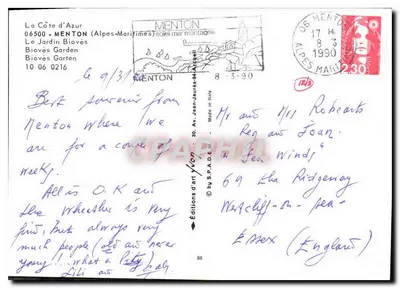 La Côte d'Azur
06500 - MENTON (Alpes-Maritimes)
Le Jardin Biovès
Bioves Garden
Bioves Garten
10 06 0216
MENTON
MENTON
8 - 3-90
06 MENTON
17 H
8 3
1990
ALPES MARITIMES
2,30
le 9/3/
Best souvenir from
Menton where we
are for a couple of
weeks.
All is O.K and
the wheather is very
fine, but always very
much people (old and never
young!... what a Pity)
Lili and
Editions d'art yvon
20, Av. Jean-Jaurès
© by S.P.A.D.E.M.
Made in Italy
Mr and Mrs Roberts
Reg and Joan
" Four Winds "
69 the Ridgeway
Westcliff-on-sea
Essex (England)